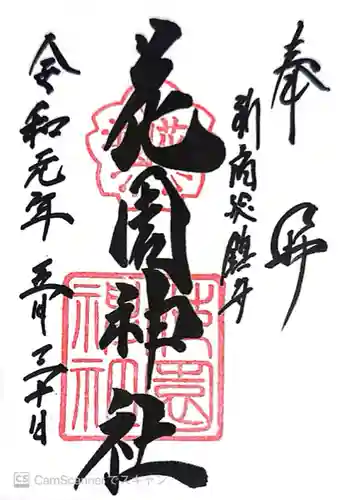 奉拝
新宿総鎮守
花園神社
令和元年五月三十日
花園神社
CamScannerでスキャン